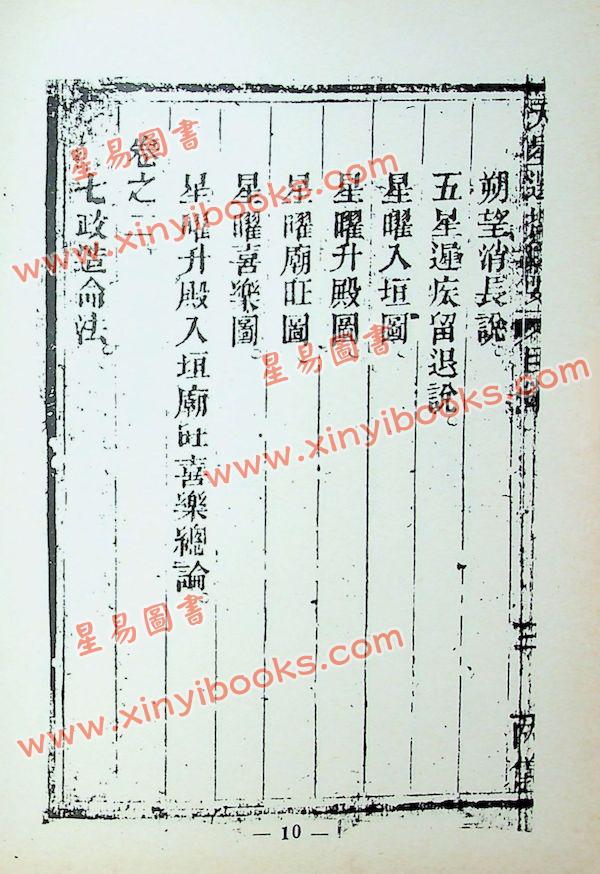 朔望消長說。
五星遲疾留退說。
星曜入垣圖。
星曜升殿圖
星曜廟旺圖。
星曜喜樂圖。
星曜升殿入垣廟旺喜樂總論。
卷之二
七政造命法。
— 10 —
星易圖書
www.xinyibooks.com
星易圖書
www.xinyibooks.com
星易圖書
www.xinyibooks.com